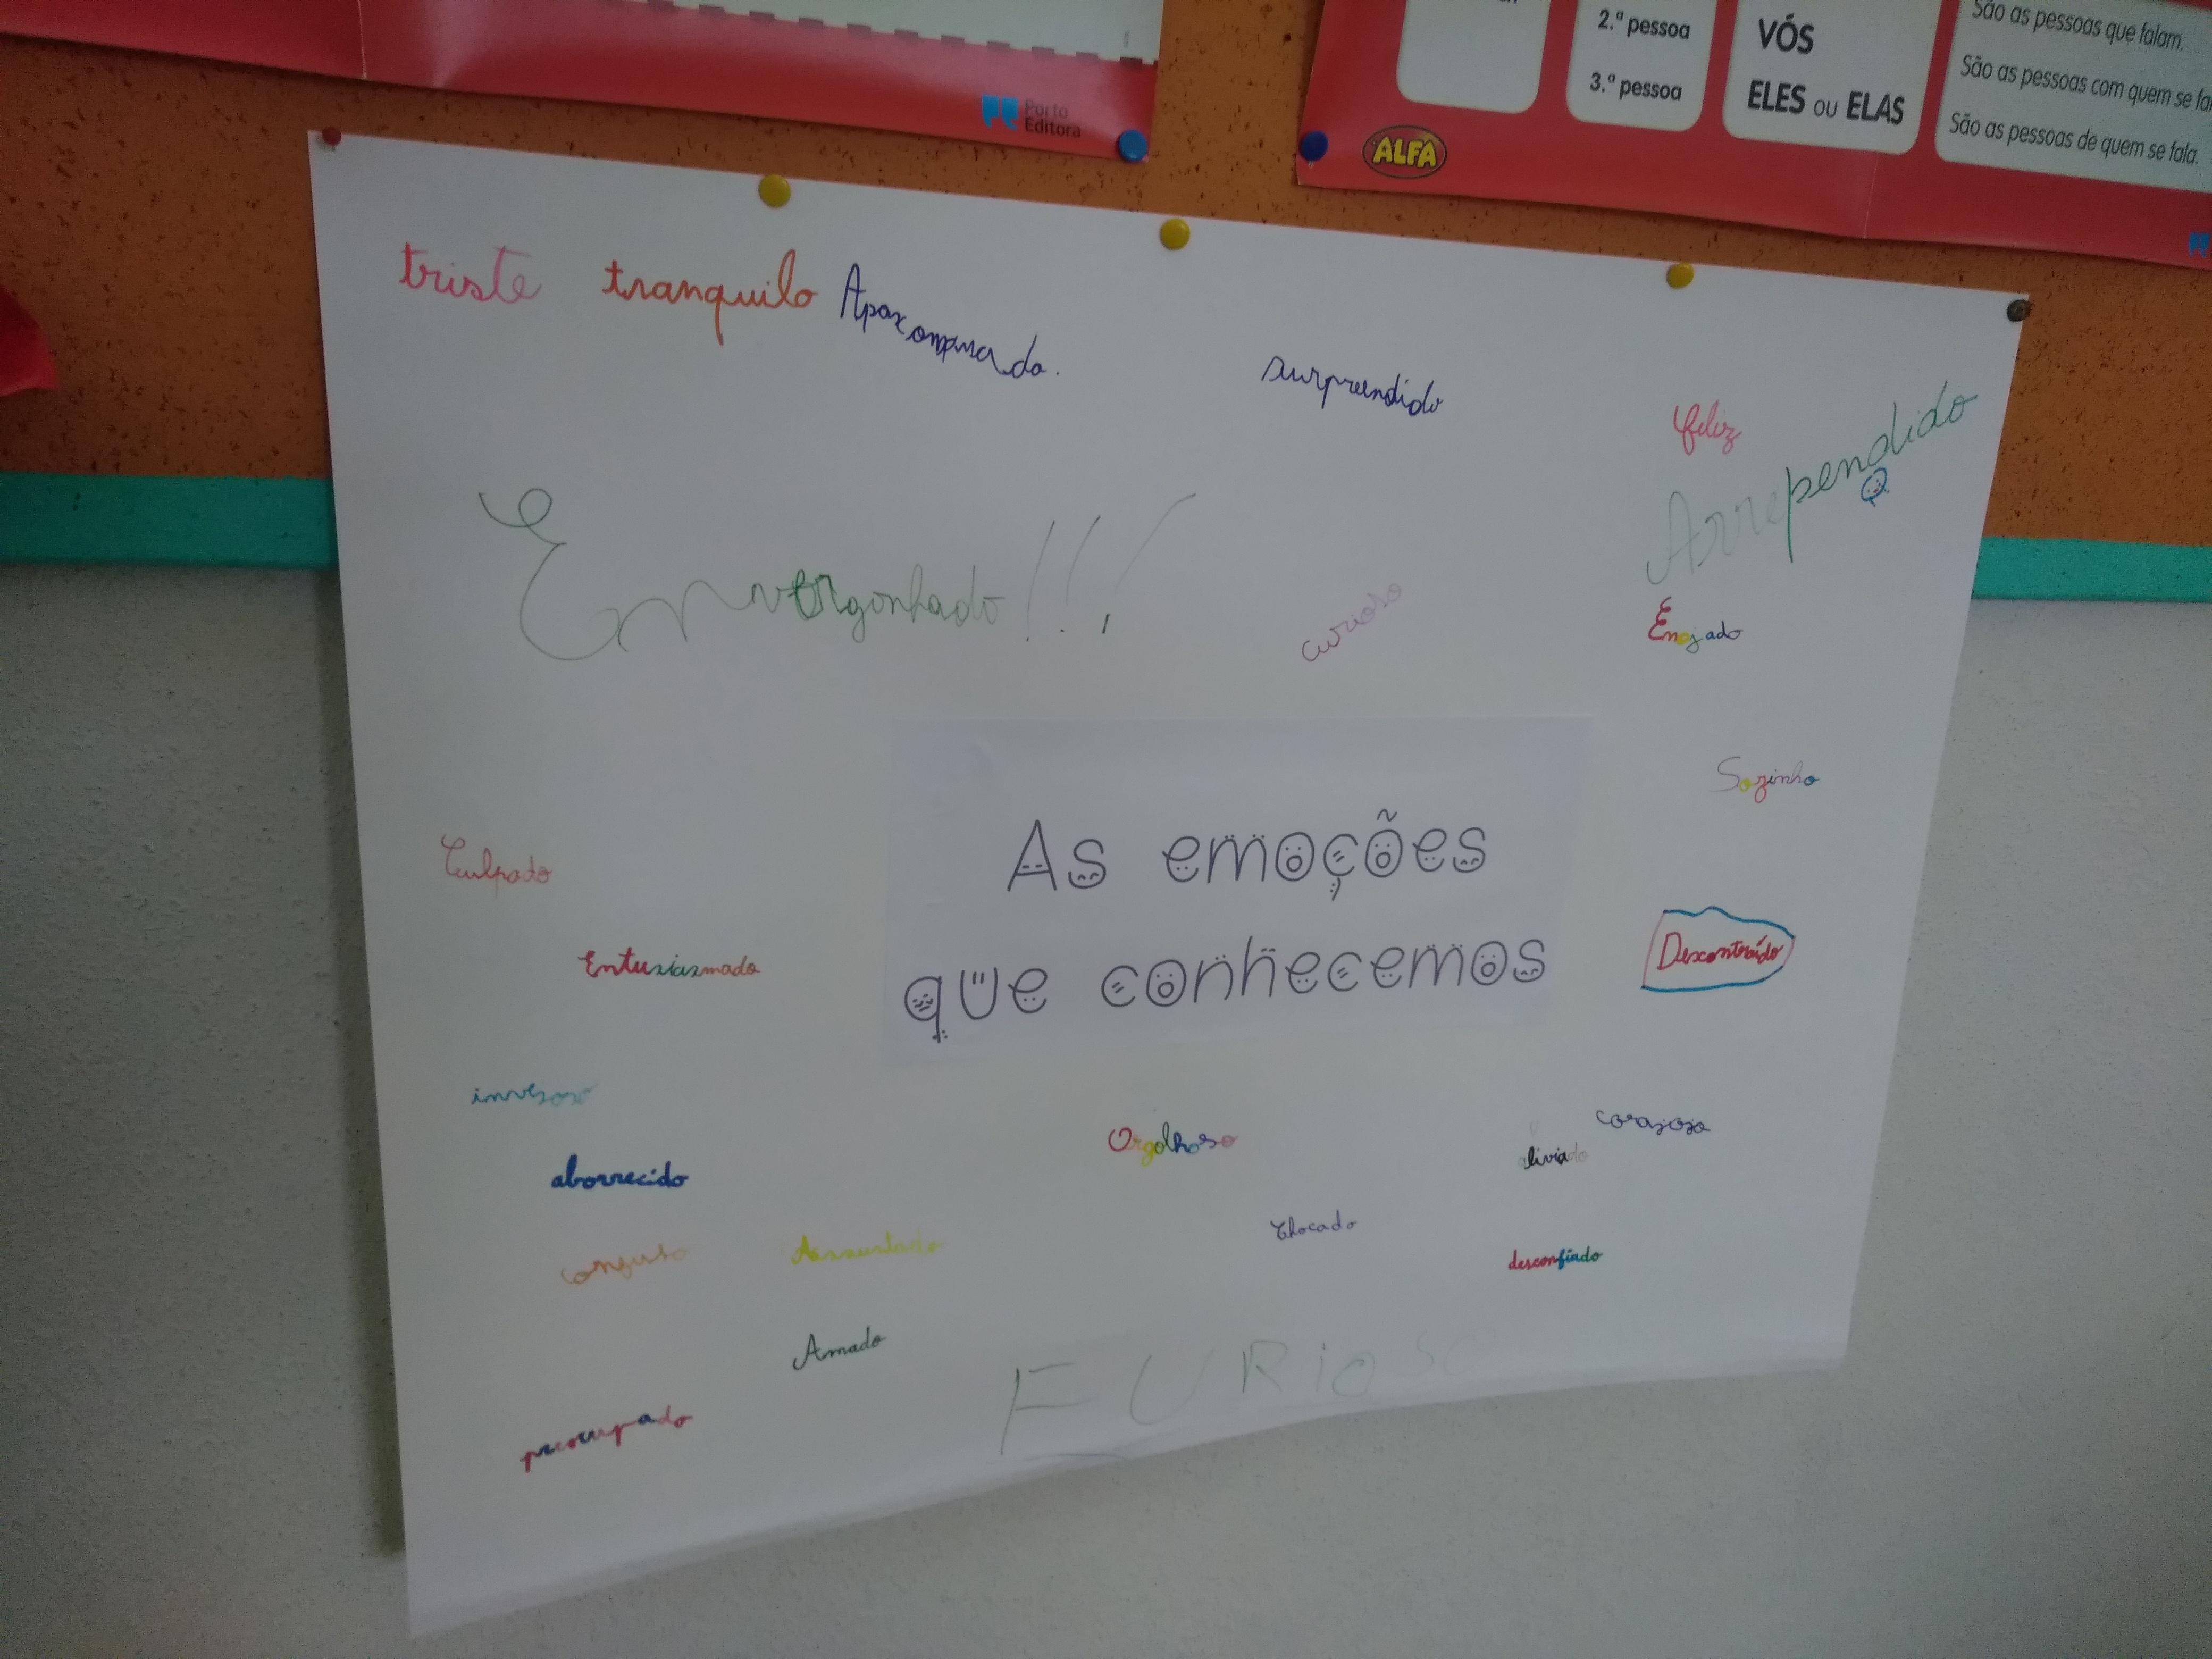 1
Porto
Editora
2.ª pessoa
3.ª pessoa
VÓS
ELES ou ELAS
São as pessoas que falam.
São as pessoas com quem se fa
São as pessoas de quem se fala.
ALFA
triste tranquilo
surpreendido
feliz
Arrependido
Envergonhado!!!
curioso
Enojado
Sozinho
As emoções
que conhecemos
Culpado
Entusiasmado
Descontraído
invesoso
aborrecido
Orgolhoso
corajoso
aliviado
confuso
Assustado
Chocado
desconfiado
Amado
FURioso
preocupado